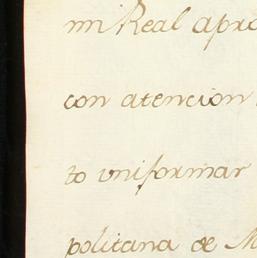 mi Real apro
con atencion
to vniformar
politana de M